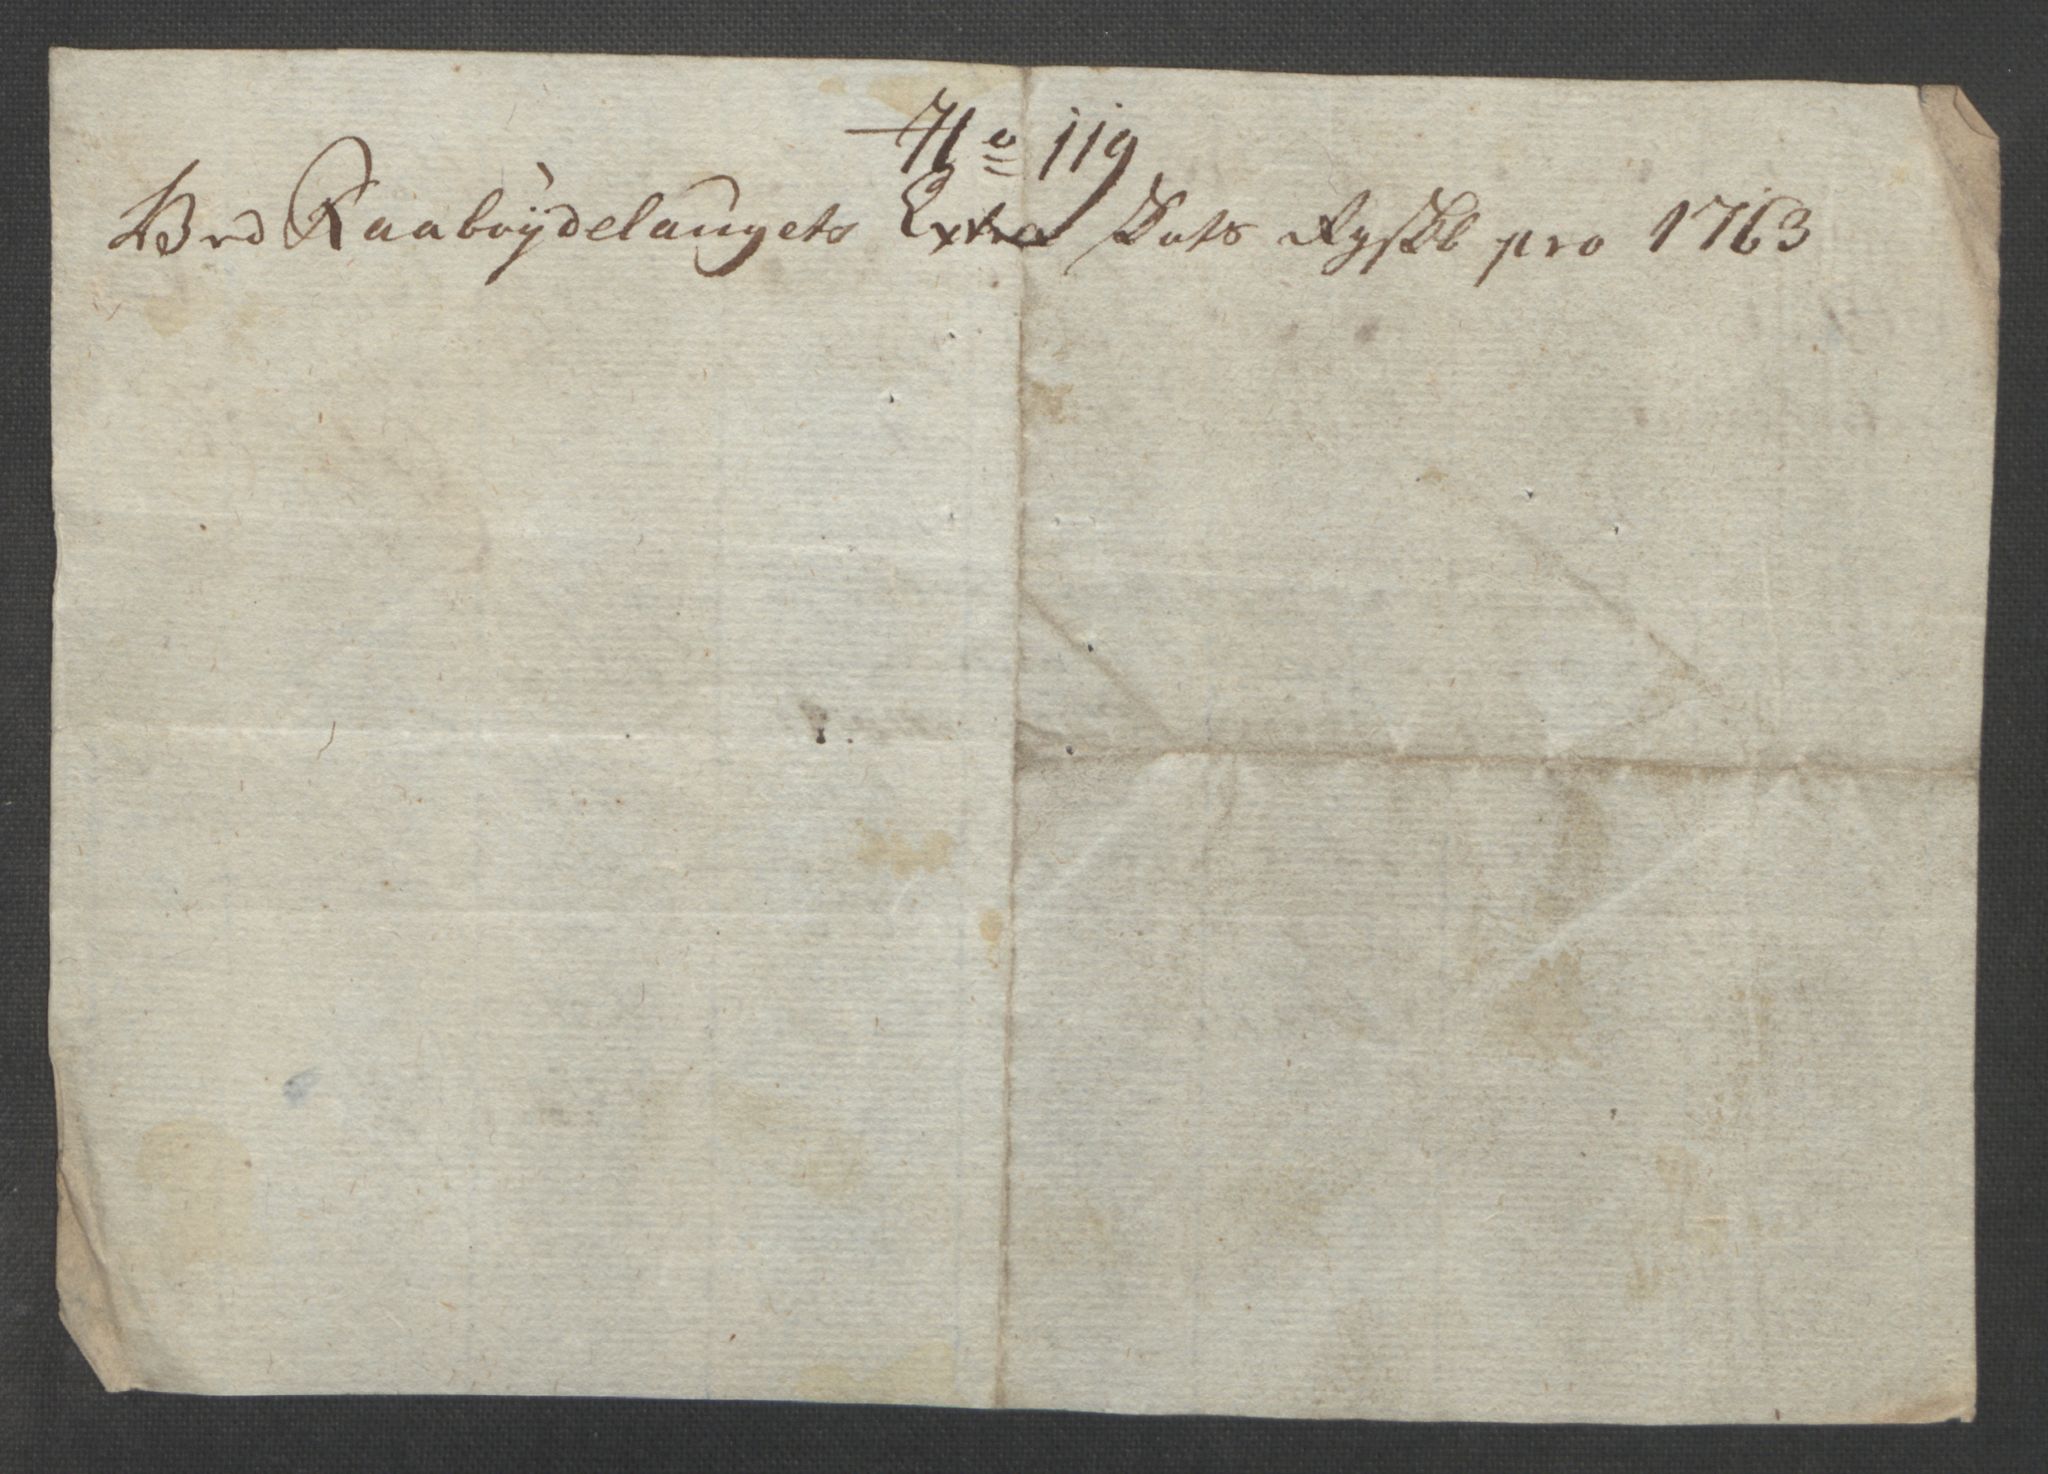 No 119
Ved Raabøydelaugets Extra Skats Rgskb pro 1763